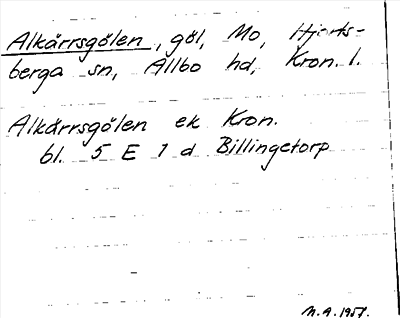 Alkärrsgölen, göl, Mo, Hjorts-
berga sn, Allbo hd, Kron. l.
Alkärrsgölen ek Kron.
bl. 5 E 1 d Billingetorp
N.A. 1957.